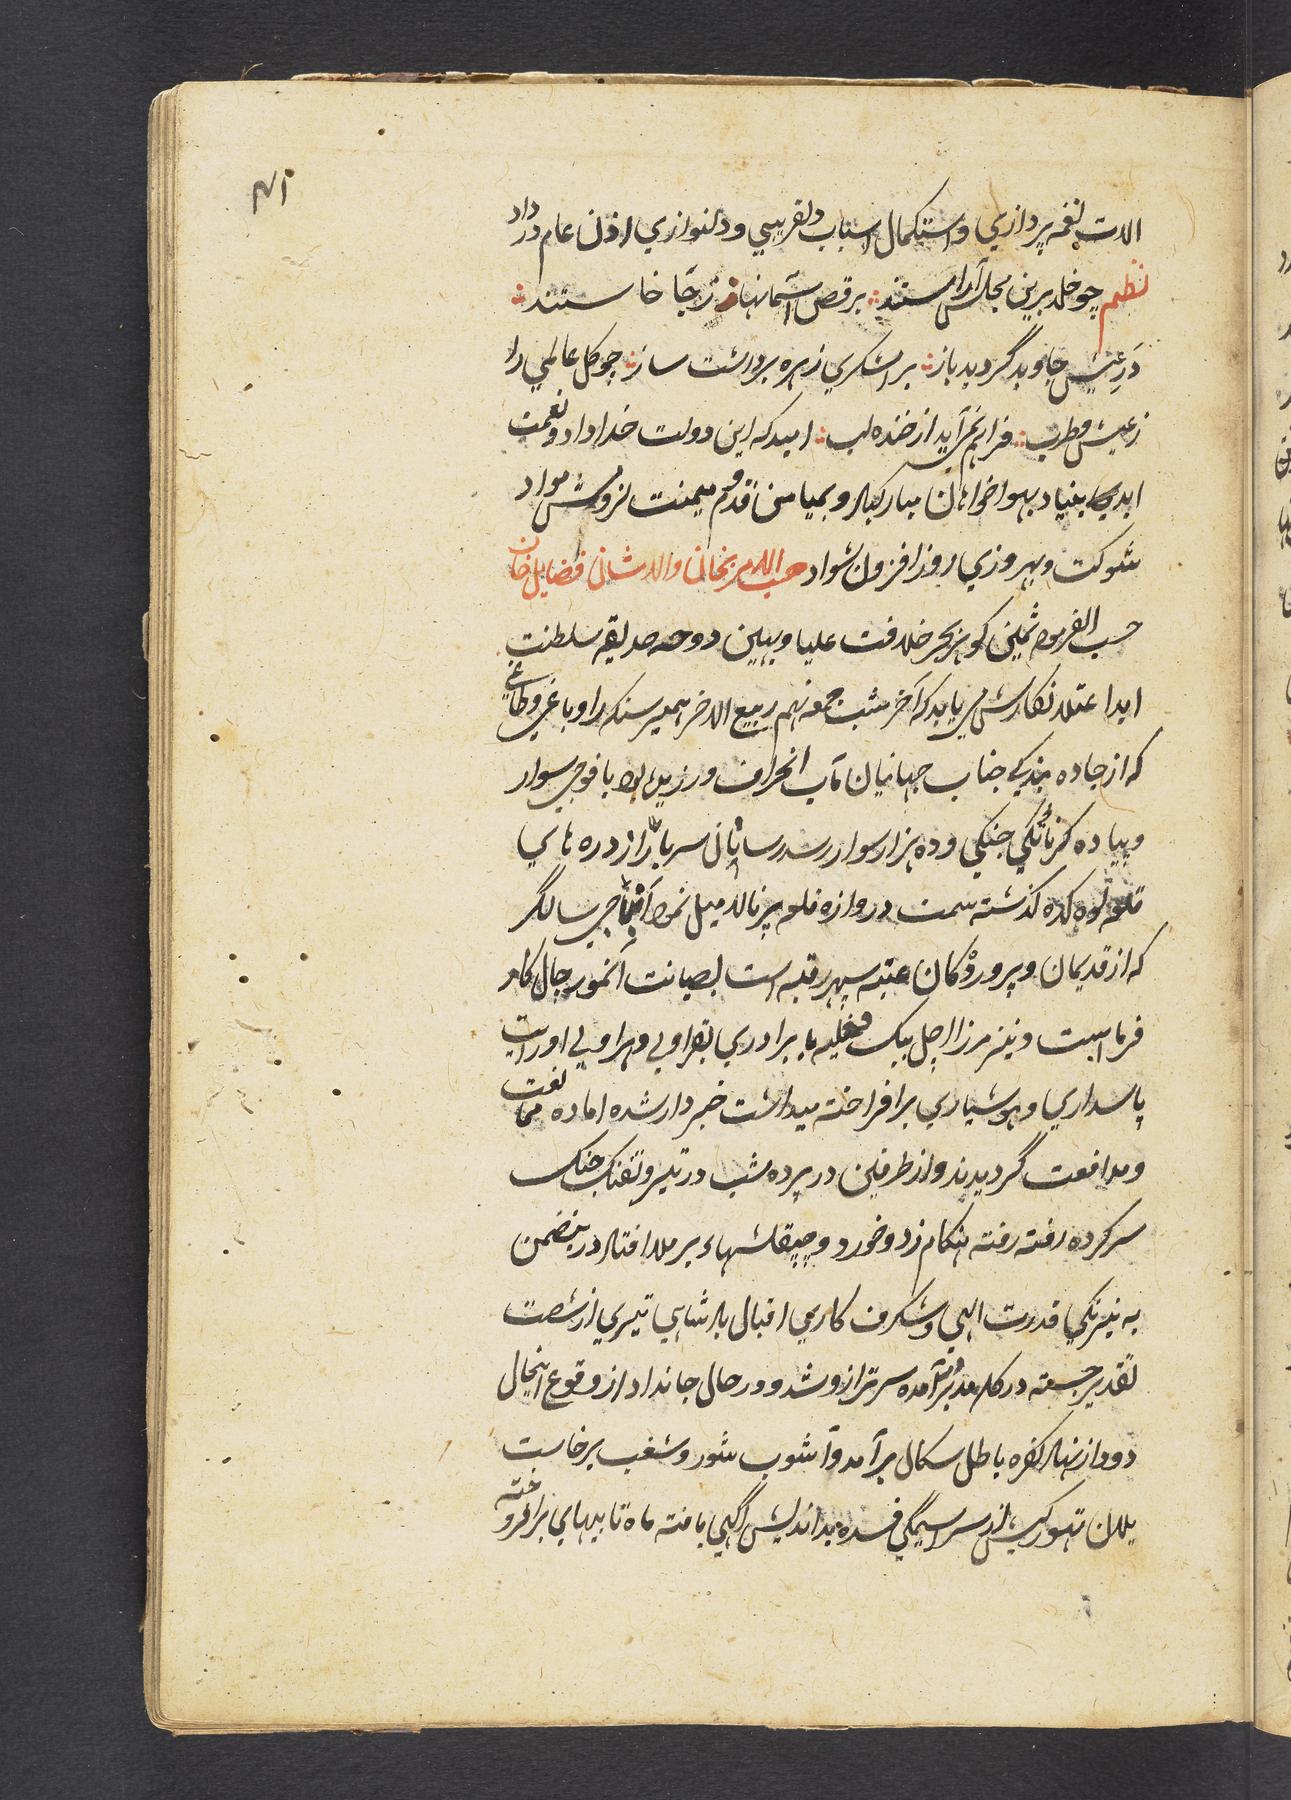 ۴۱
الات نغمه پردازي و استكمال اسباب دلفريبي و دلنوازي اذن عام در داد
نظم چو خلد برين مجلس آراستند ؞ برقص آسمانها ز جا خاستند ؞
در عيش جاويد گرديد باز ؞ برامشكري زهره برداشت ساز ؞ چو كل عالمي را
ز عيش و طرب ؞ فراهم نمي آيد از خنده لب ؞ اميد كه اين دولت خداداد و نعمت
ابدي بنياد بهواخواهان مبارك باد و بميامن قدوم ميمنت لزومش مواد
شوكت و بهروزي روز افزون شواد حسب الامر بخان والا شان فضايل خان
حسب الفرموده ثمين كوهر بحر خلافت عليا و بهين دوحه حديقه سلطنت
ابد اعتلا نكارش مي يابد كه آخر شب جمعه نهم ربيع الاخر هميرسنكه را و باغي و طاغي
كه از جاده بندكي جناب جهانيان مآب انحراف ورزيده بود با فوجي سوار
و پياده كرناتكي جنكي و ده هزار سوار رسد رسانان سربار از دره هاي
قلعه كذشته سمت دروازه قلعه پرناله ميل نمود سالكر
كه از قديمان و پروردكان عتبه سپهر رتبه است بصيانت آنمورجال كار
فرماست و نيز مرزا اچل بيك مغليه به برادري بقراولي و هراولي او رايت
پاسداري و هوشياري برافراخته ميداشت خبردار شده اماده ممانعت
و مدافعت گرديدند و از طرفين در پرده شب در تير و تفنك جنك
سر كرده رفته رفته هنكام زد و خورد و چپقلشهاء برملا افتاد درينضمن
به نيرنكي قدرت الهي و شكرف كاري اقبال بادشاهي تيري از شصت
تقدير جسته در كله آمده سرترازو شد و در حال جان داد از وقوع اينحال
دود از نهاد كفره باطل سكال برآمد و آشوب شور و شغب برخاست
يلان تهور كيش از سراسيمگي فسده بدانديش آگهي يافته ماه تابيهاي برافروخته